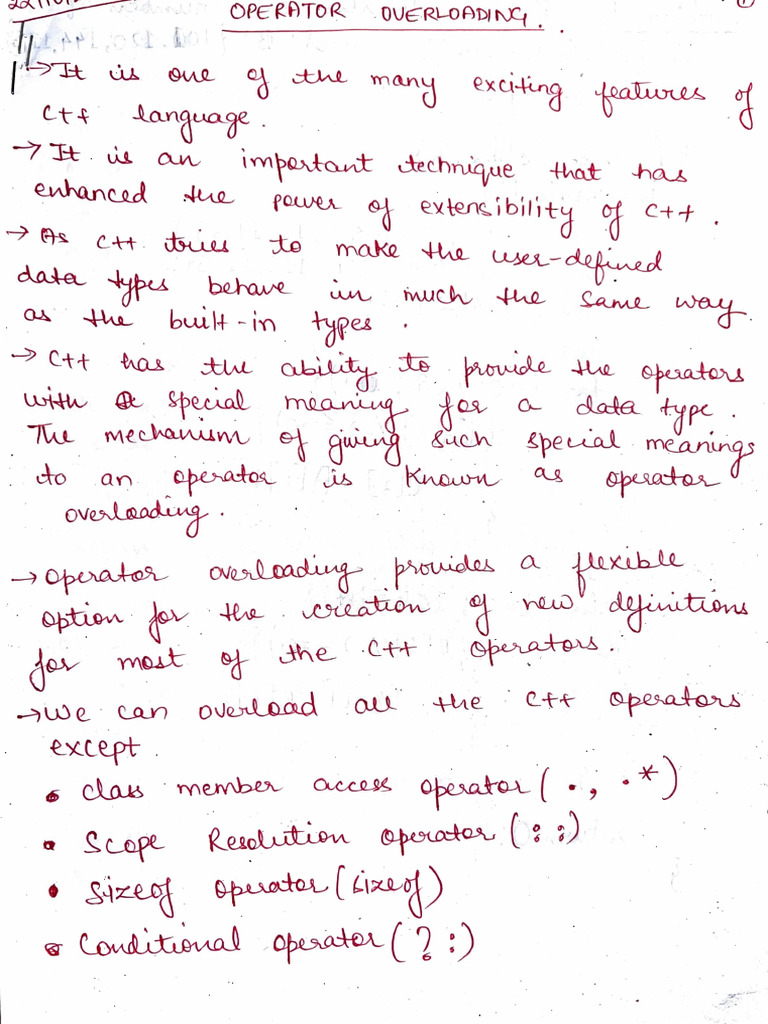 OPERATOR OVERLOADING.
→ It is one of the many exciting features of
C++ language.
→ It is an important technique that has
enhanced the power of extensibility of C++.
→ As C++ tries to make the user-defined
data types behave in much the same way
as the built-in types.
→ C++ has the ability to provide the operators
with a special meaning for a data type.
The mechanism of giving such special meanings
to an operator is known as operator
overloading.
→ Operator overloading provides a flexible
option for the creation of new definitions
for most of the C++ operators.
→ We can overload all the C++ operators
except.
• Class member access operator (., .*)
• Scope Resolution operator (::)
• Sizeof operator (sizeof)
• Conditional operator (?:)